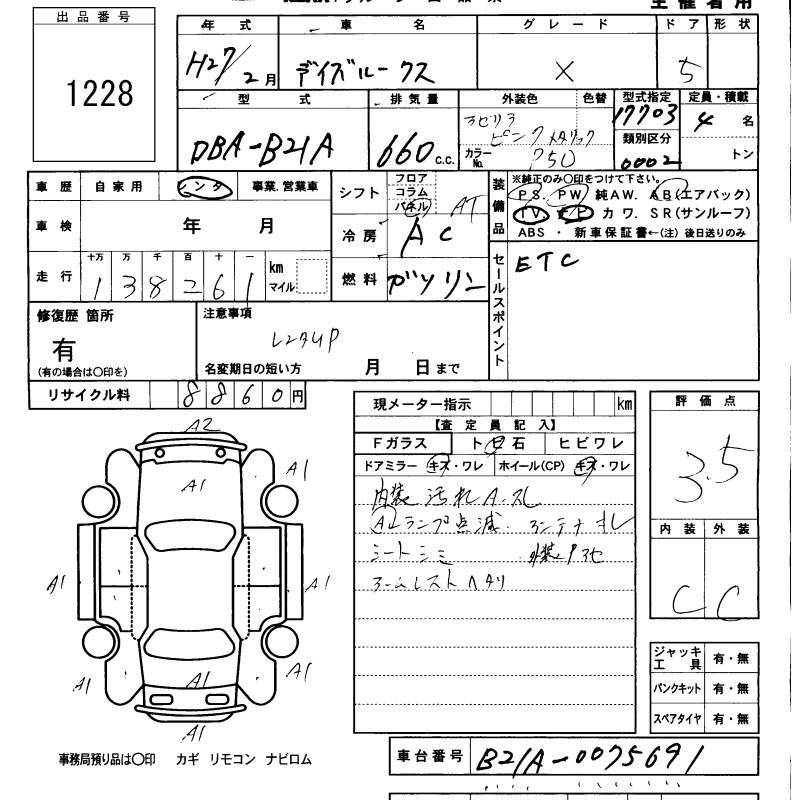 主催者用
出品番号
1228
年式 車名 グレード ドア 形状
H27/2月 デイズルークス X 5
型式 排気量 外装色 色替 型式指定 定員・積載
DBA-B21A 660c.c. カラーNo. 17703 4名
ピンクメタリック 類別区分 0002 トン
車歴 自家用 レンタ 事業.営業車
シフト フロア コラム パネル AT
装備品 ※純正のみ〇印をつけて下さい。
PS. PW 純AW. AB(エアバック)
TV. ナビ カワ. SR(サンルーフ)
ABS ・ 新車保証書←(注)後日送りのみ
車検 年 月
冷房 AC
走行 十万 万 千 百 十 一 km マイル
138261
燃料 ガソリン
セールスポイント
ETC
修復歴 箇所
有
(有の場合は〇印を)
注意事項
レンタUP
名変期日の短い方 月 日まで
リサイクル料 8860円
現メーター指示 km
【査定員記入】
Fガラス トビ石 ヒビワレ
ドアミラー キズ・ワレ ホイール(CP) キズ・ワレ
内装汚れA・スレ
ランプ点滅 キレ
シートシミ
アームレストヘタリ
評価点
3.5
内装 外装
C C
ジャッキ工具 有・無
パンクキット 有・無
スペアタイヤ 有・無
A2
A1
A1
A1
A1
A1
A1
A1
A1
A1
事務局預り品は〇印 カギ リモコン ナビロム
車台番号 B21A-0075691